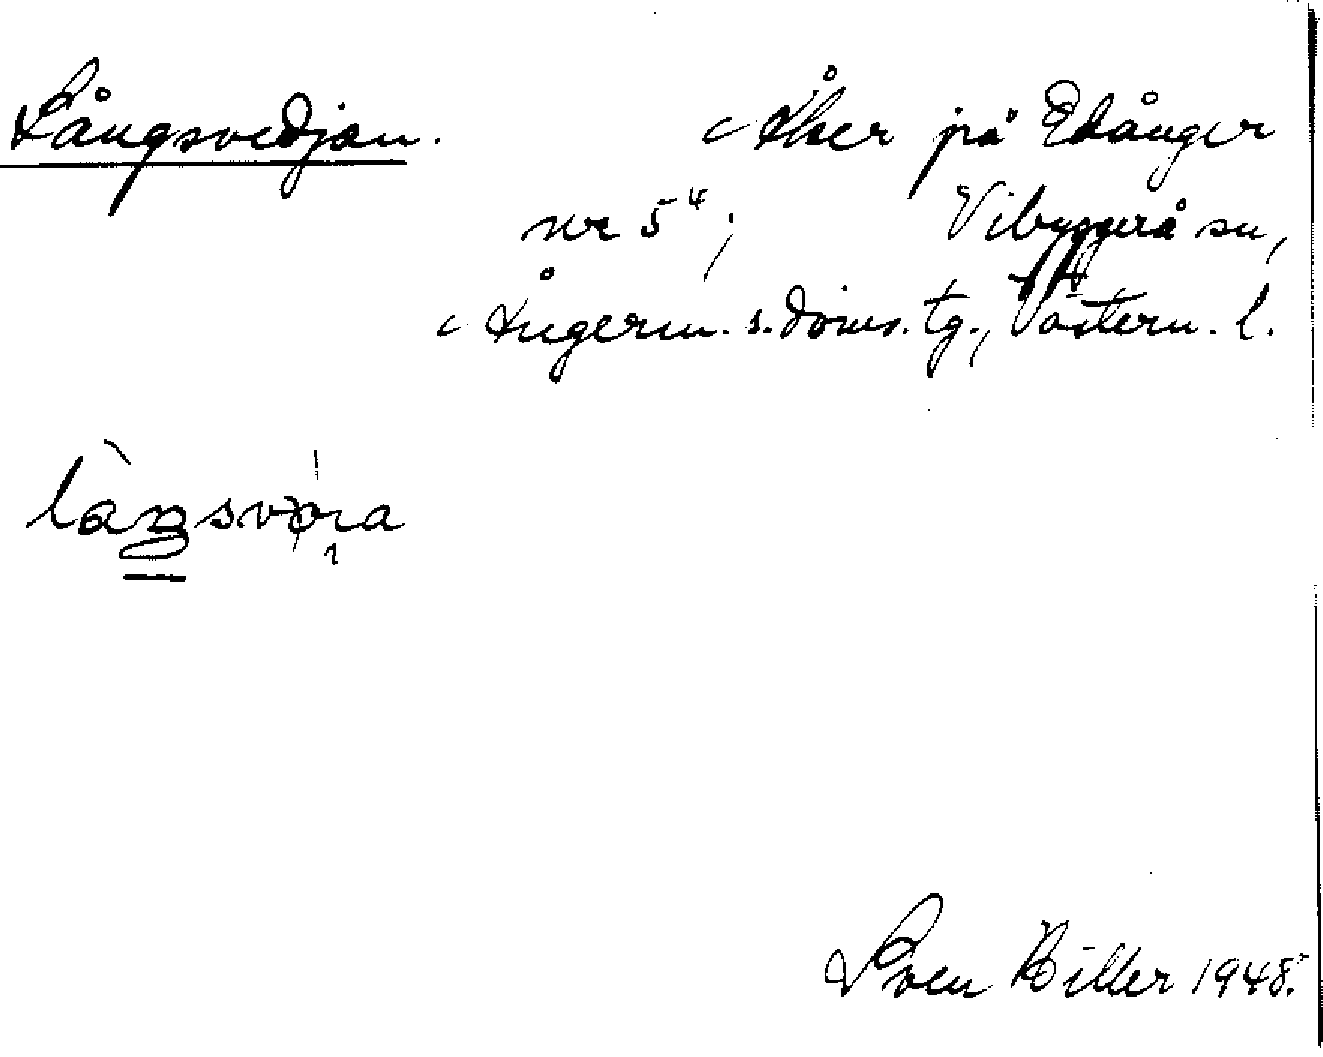 Långsvedjan. Åker på Edånger
nr 5⁴; Vibyggerå sn,
Ångerm. s. doms. tg., Västern. l.
Sven Hiller 1948.